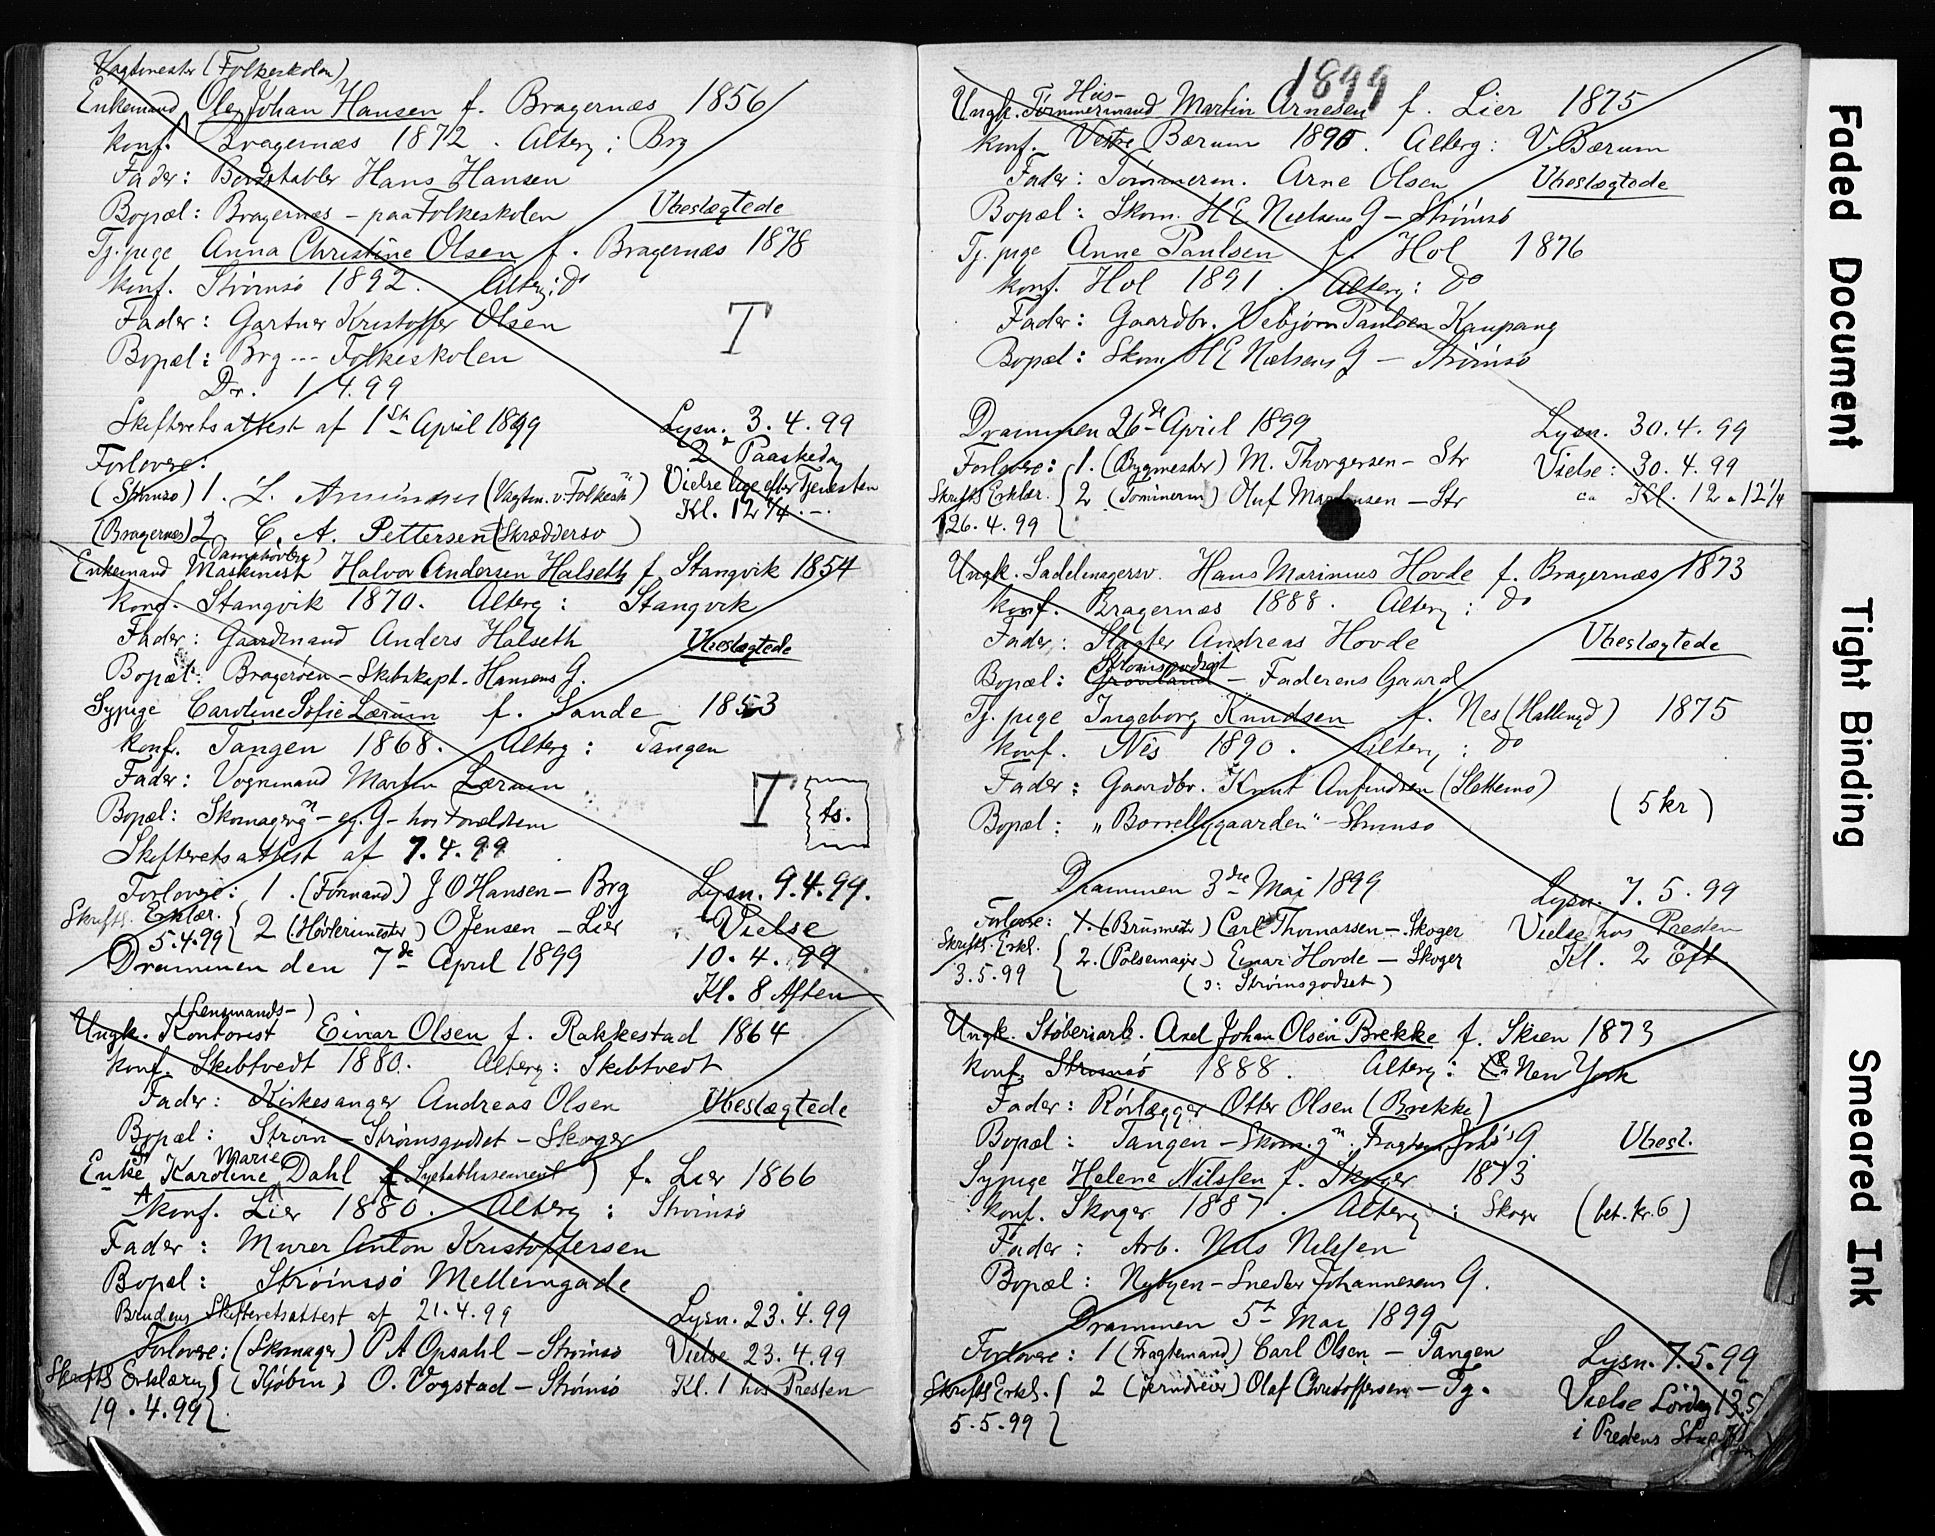 Vagtmester (Folkeskolen)
Enkemand Ole Johan Hansen f. Bragernæs 1856
konf. Bragernæs 1872. Alterg: Brg
Fader: Bordstabler Hans Hansen
Bopæl: Bragernæs - paa Folkeskolen Ubeslægtede
Tj. pige Anna Christine Olsen f. Bragernæs 1878
konf. Strømsø 1892. Alterg: do
Fader: Gartner Kristoffer Olsen
T
Bopæl: Brg --- Folkeskolen
Dr. 1.4.99
Skifteretsattest af 1ste April 1899 Lysn. 3.4.99
2 Paaskedag
Forlovere:
(Strømsø) 1. L. (Vagtm. v. Folkesk) Vielse lige efter Tjenesten
Kl. 12 1/4.-.
(Bragernes) 2 C. A. Pettersen (Skræddersv)
(Damphøvleri)
Enkemand Maskinist Halvor Andersen Halseth f. Stangvik 1854
konf. Stangvik 1870. Alterg: Stangvik
Fader: Gaardmand Anders Halseth Ubeslægtede
Bopæl: Bragerøen - Skibskapt. Hansens G.
Sypige Caroline Sofie Lærum f. Sande 1853
konf. Tangen 1868. Alterg: Tangen
Fader: Vognmand Martin Lærum
T ts.
Bopæl: Skomagerg - eg. G - hos Forældrene
Skifteretsattest af 7.4.99
Forlovere: 1. (Formand) J O Hansen - Brg Lysn. 9.4.99.
Skriftl. Erklær.
5.4.99 { 2 (Høvlerimester) O Jensen - Lier Vielse
Drammen den 7de April 1899 10.4.99
Kl. 8 Aften
(Lensmands-)
Ungk. Kontorist Einar Olsen f. Rakkestad 1864
konf. Skibtvedt 1880. Alterg: Skibtvedt
Fader: Kirkesanger Andreas Olsen Ubeslægtede
Bopæl: Strøm - Strømsgodset - Skoger
Marie
Enke Karoline Dahl (Syetablissement) f. Lier 1866
konf. Lier 1880. Alterg: Strømsø
Fader: Murer Anton Kristoffersen
Bopæl: Strømsø Mellemgade
Brudens Skifteretsattest af 21.4.99 Lysn. 23.4.99
Forlovere: (Skomager) P A Opsahl - Strømsø Vielse 23.4.99
Skriftl Erklæring { (Kjøbm) O. Vogstad - Strømsø Kl. 1 hos Presten
19.4.99 {
1899
Hus-
Ungk. Tømmermand Martin Arnesen f. Lier 1875
konf. Vestre Bærum 1890. Alterg: V. Bærum
Fader: Tømmerm. Arne Olsen Ubeslægtede
Bopæl: Skom. H E Nielsens G - Strømsø
Tj. pige Anne Paulsen f. Hol 1876
konf. Hol 1891. Alterg: do
Fader: Gaardbr. Vebjørn Paulsen Kaupang
Bopæl: Skom H E Nielsens G - Strømsø
Drammen 26de April 1899 Lysn. 30.4.99
Forlovere: { 1. (Bygmester) M. Thorgersen - Str Vielse: 30.4.99
Skriftl Erklær. { 2 (Tømmerm) Oluf Martinsen - Str ca Kl. 12 a 12 1/4
26.4.99
Ungk. Sadelmagersv. Hans Marinius Hovde f. Bragernæs 1873
konf. Bragernæs 1888. Alterg: do
Fader: Slagter Andreas Hovde Ubeslægtede
Strømsgodset
Bopæl: Grønland - Faderens Gaard
Tj. pige Ingeborg Knudsen f. Nes (Hallingd) 1875
konf. Nes 1890. Alterg: do
Fader: Gaardbr. Knut Anfindsen (Slettemo)
(5 kr)
Bopæl: „Borrellygaarden" - Strømsø
Drammen 3die Mai 1899 Lysn. 7.5.99
Forlovere: 1. (Brusmester) Carl Thomassen - Skoger Vielse hos Presten
Skriftl. Erkl.
3.5.99 { 2. (Pølsemager) Einar Hovde - Skoger Kl. 2 Eft.
(ɔ: Strømsgodset)
Ungk. Støberiarb. Axel Johan Olsen Brekke f. Skien 1873
konf. Strømsø 1888. Alterg: New York
Fader: Rørlægger Otter Olsen (Brekke)
Bopæl: Tangen - Skom.g. Fragtem Johs G. Ubesl.
Sypige Helene Nilssen f. Skoger 1873
konf. Skoger 1887. Alterg: Skoger (bet. kr. 6)
Fader: Arb. Nils Nilssen
Bopæl: Nybyen - Sneder Johannesens G.
Drammen 5te Mai 1899
Forlovere: 1 (Fragtemand) Carl Olsen - Tangen Lysn. 7.5.99
Skriftl. Erkl. { 2 (Jerndreier) Olaf Christoffersen - Tg. Vielse Lørdag 13.5
5.5.99 { i Prestens
Faded Document
Tight Binding
Smeared Ink